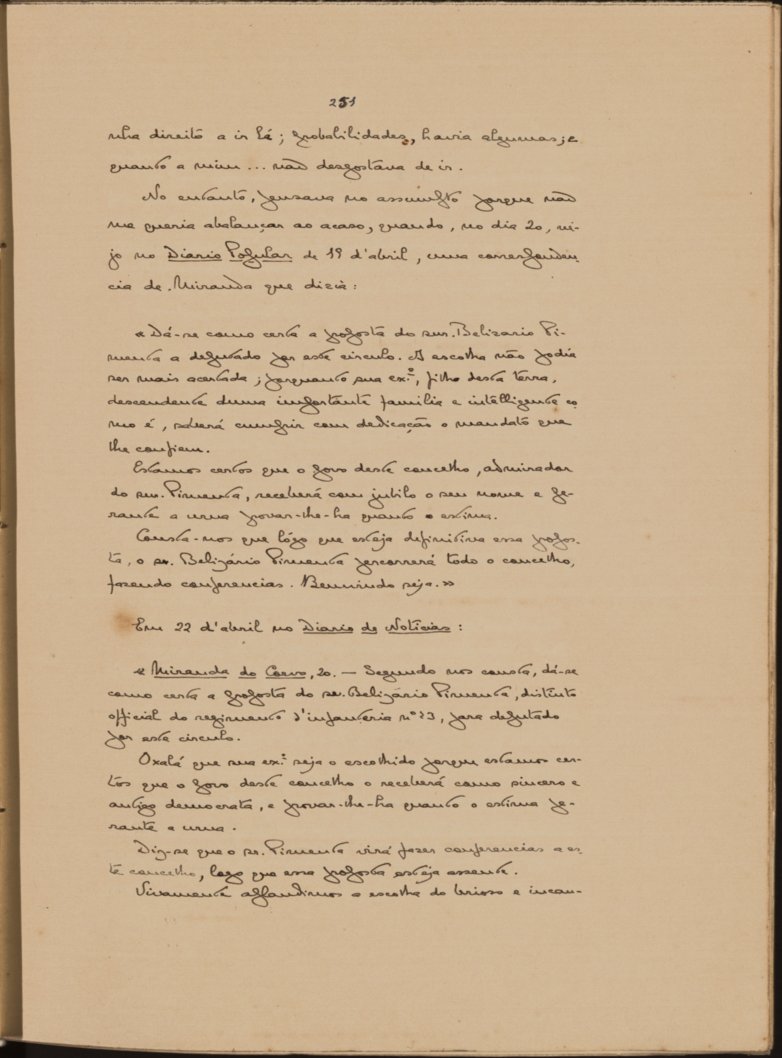 251
nha direito a ir lá; probabilidades, havia algumas; e
quanto a mim... não desgostava de ir.
No entanto, pensava no assumpto porque não
me queria abalançar ao acaso, quando, no dia 20, ve-
jo no Diario Popular de 19 d'abril, uma corresponden-
cia de Miranda que dizia:
«Dá-se como certa a proposta do snr. Belizario Pi-
menta a deputado por este circulo. A escolha não podia
ser mais acertada; porquanto sua ex.ª, filho desta terra,
descendente duma importante familia e intelligente co-
mo é, saberá cumprir com dedicação o mandato que
lhe confiem.
Estamos certos que o povo deste concelho, admirador
do snr. Pimenta, receberá com jubilo o seu nome e pe-
rante a urna provar-lhe-ha quanto o estima.
Consta-nos que lógo que esteja definitiva essa propos-
ta, o sr. Belizário Pimenta percorrerá todo o concelho,
fazendo conferencias. Bemvindo seja.»
Em 22 d'abril no Diario de Noticias:
«Miranda do Corvo, 20. — Segundo nos consta, dá-se
como certa a proposta do sr. Belizário Pimenta, distinto
official do regimento d'infanteria nº 23, para deputado
por este circulo.
Oxalá que sua ex.ª seja o escolhido porque estamos cer-
tos que o povo deste concelho o receberá como sincero e
antigo democrata, e provar-lhe-ha quanto o estima pe-
rante a urna.
Diz-se que o sr. Pimenta virá fazer conferencias a es-
te concelho, logo que essa proposta esteja assente.
Vivamente applaudimos a escolha do brioso e incan-